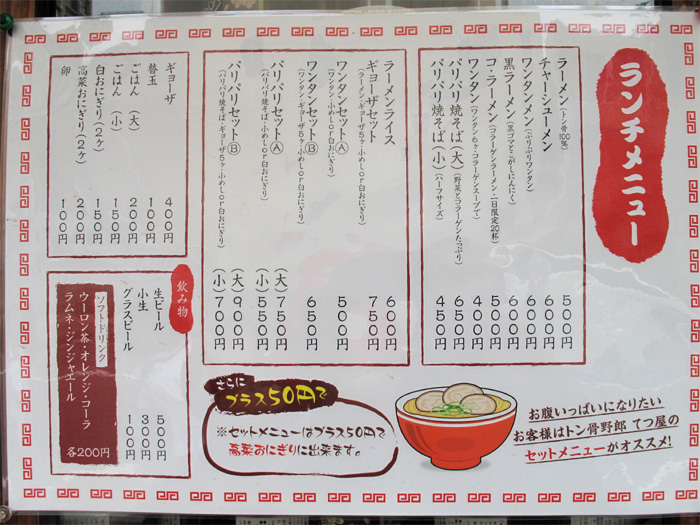 ランチメニュー
ラーメン(トン骨100%) 500円
チャーシューメン 600円
ワンタンメン(ぷりぷりワンタン) 600円
黒ラーメン(黒ゴマとこがしにんにく) 600円
コ・ラーメン(コラーゲンラーメン・一日限定20杯) 500円
ワンタン(ワンタン6ヶ・コラーゲンスープで) 400円
パリパリ焼そば(大)(野菜とコラーゲンたっぷり) 650円
パリパリ焼そば(小)(ハーフサイズ) 450円
ラーメンライス 600円
ギョーザセット 750円
(ラーメン・ギョーザ5ヶ・小めしor白おにぎり)
ワンタンセットⒶ 500円
(ワンタン・小めしor白おにぎり)
ワンタンセットⒷ 650円
(ワンタン・ギョーザ5ヶ・小めしor白おにぎり)
パリパリセットⒶ (大) 750円
(パリパリ焼そば・小めしor白おにぎり) (小) 550円
パリパリセットⒷ (大) 900円
(パリパリ焼そば・ギョーザ5ヶ・小めしor白おにぎり) (小) 700円
ギョーザ 400円
替玉 100円
ごはん(大) 200円
ごはん(小) 150円
白おにぎり(2ヶ) 150円
高菜おにぎり(2ヶ) 200円
卵 100円
飲み物
生ビール 500円
小生 300円
グラスビール 100円
ソフトドリンク
ウーロン茶・オレンジ・コーラ
ラムネ・ジンジャエール
各200円
さらに
プラス50円で
※セットメニューはプラス50円で
高菜おにぎりに出来ます。
お腹いっぱいになりたい
お客様はトン骨野郎 てつ屋の
セットメニューがオススメ!